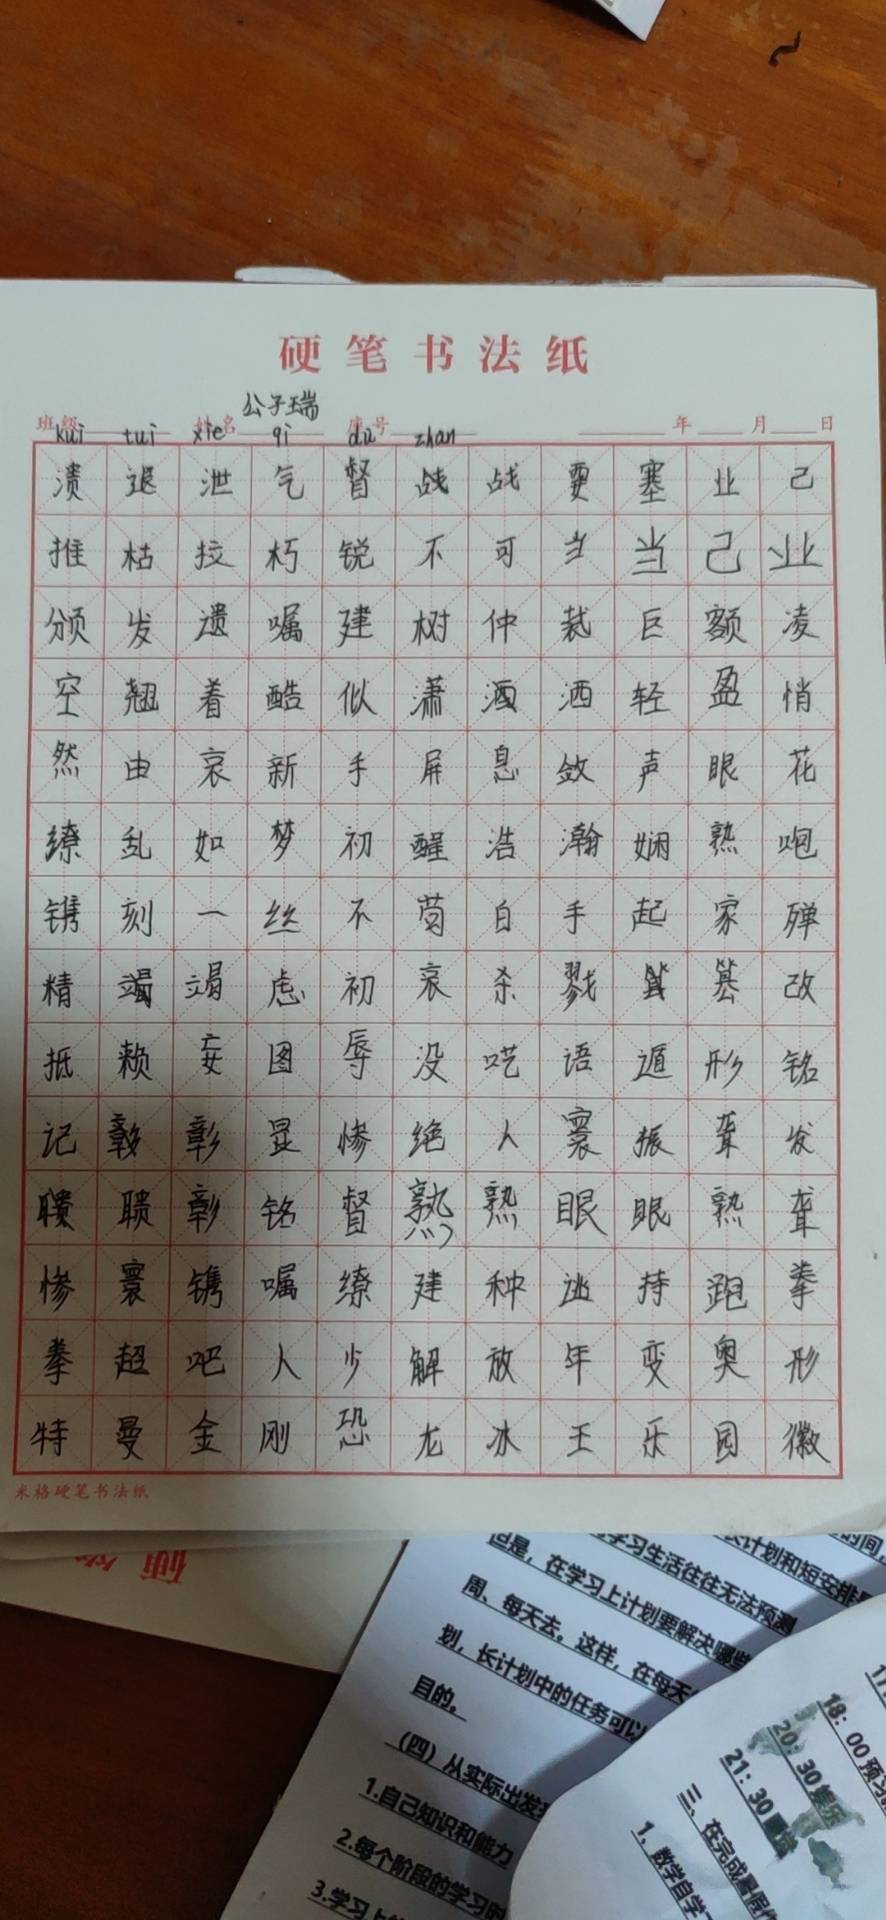 硬笔书法纸
班级 姓名 公子瑞 座号 年 月 日
kui tui xie qi du zhan
溃退泄气督战战要塞业己
推枯拉朽锐不可当当己业
颁发遗嘱建树仲裁巨额凌
空翘着酷似潇洒洒轻盈悄
然由衷新手屏息敛声眼花
缭乱如梦初醒浩瀚娴熟咆
镌刻一丝不苟白手起家殚
精竭竭虑初衷杀戮篡篡改
抵赖妄图辱没呓语遁形铭
记彰彰显惨绝人寰振聋发
聩聩彰铭督熟熟眼眠熟聋
惨寰镌嘱缭建种逃持跑拳
拳超吧人少解放年变奥形
特曼金刚恐龙冰王乐园徽
米格硬笔书法纸
硬
长计划和短安排
学习生活往往无法预测
但是，在学习上计划要解决哪些
周、每天去。这样，在每天
划，长计划中的任务可以
目的。
（四）从实际出发
1.自己知识和能力
2.每个阶段的学习时
3.学习上
18：00 预习
20：30 娱乐
21：30
三、在完成暑假
1、数学自学